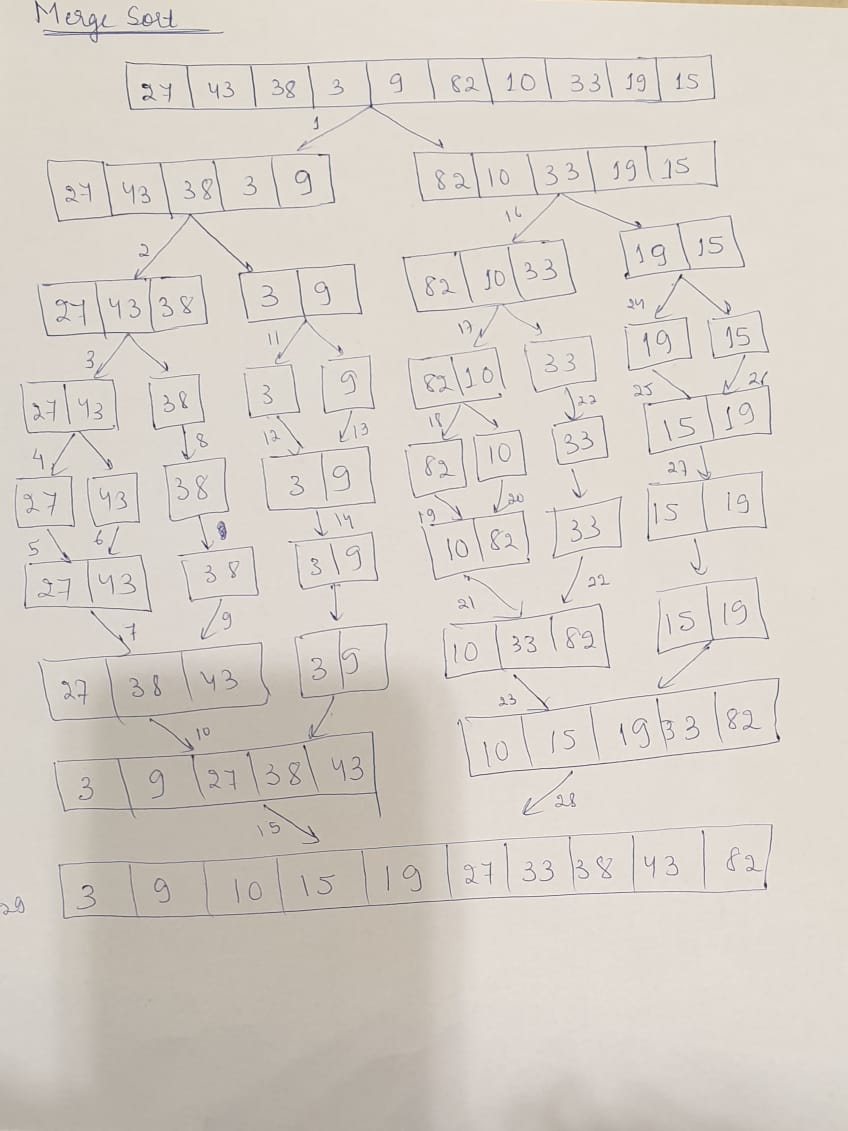 Merge Sort
27 43 38 3 9 82 10 33 19 15
1
27 43 38 3 9 82 10 33 19 15
2 16
27 43 38 3 9 82 10 33 19 15
3 11 17 24
27 43 38 3 9 82 10 33 19 15
4 8 12 13 18 22 25 26
27 43 38 3 9 82 10 33 15 19
5 6 14 19 20 27
27 43 38 3 9 10 82 33 15 19
7 9 21 22
27 38 43 3 9 10 33 82 15 19
10 23
3 9 27 38 43 10 15 19 33 82
15 28
29 3 9 10 15 19 27 33 38 43 82